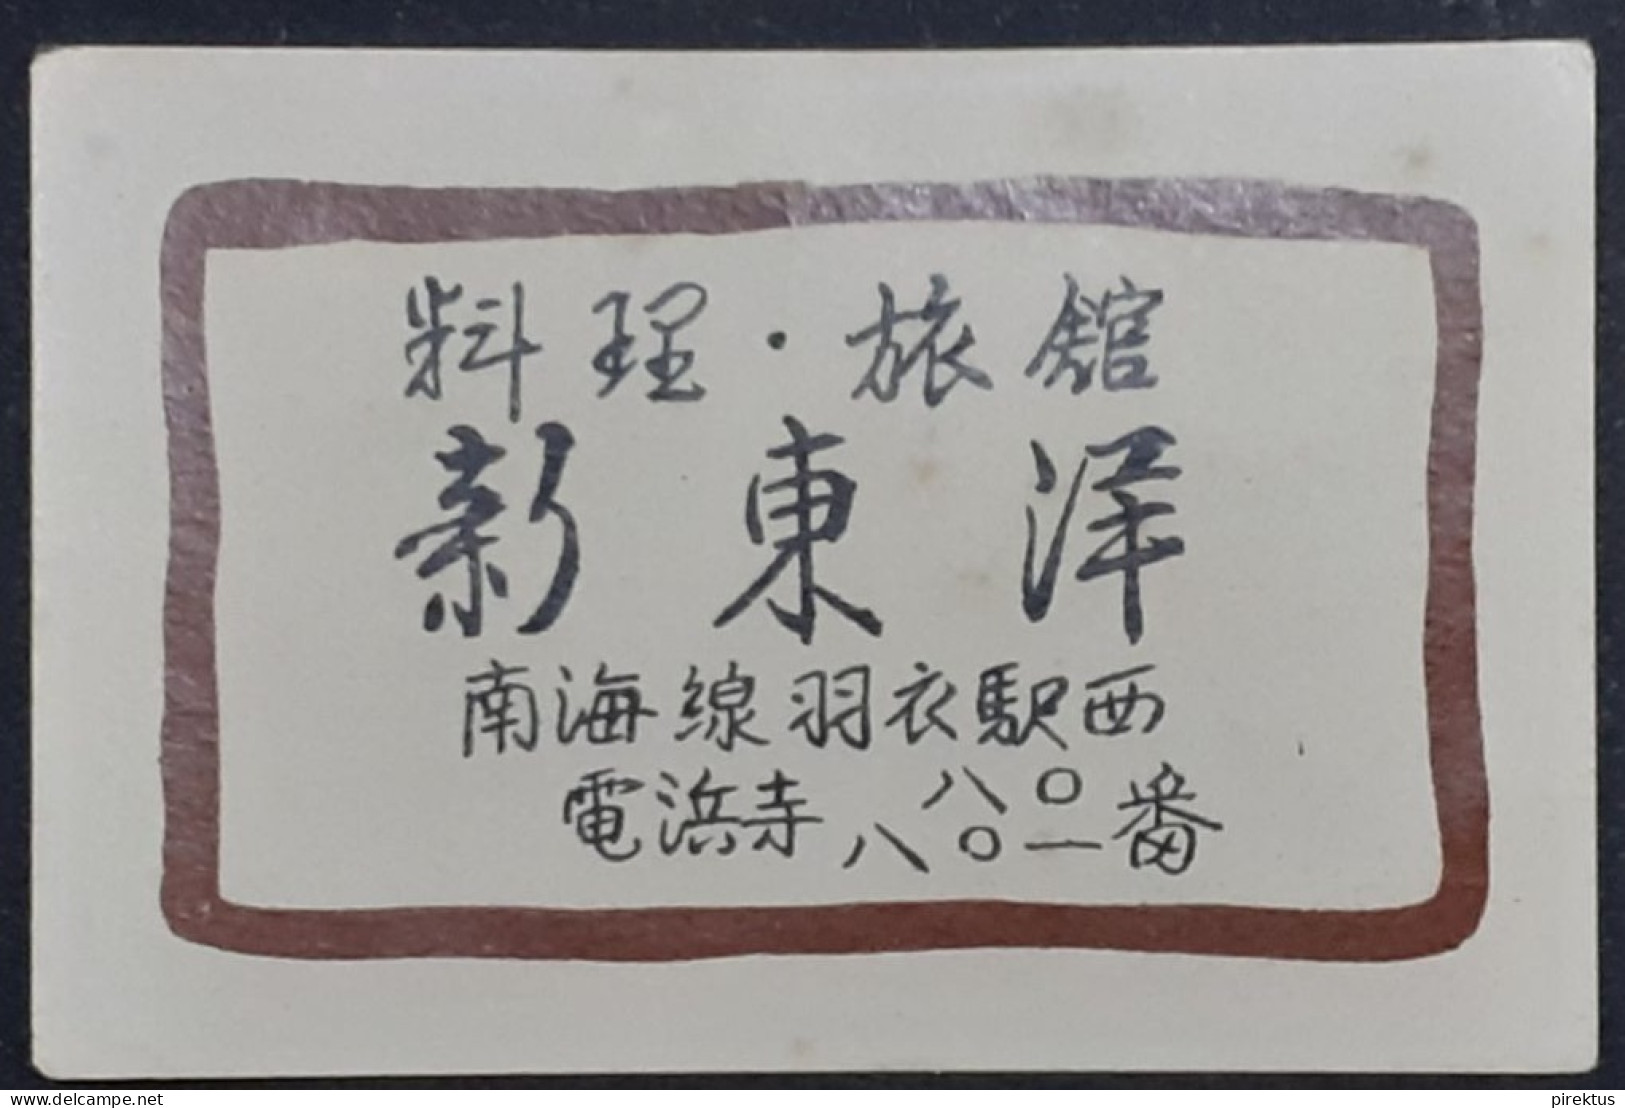 料理・旅館
新東洋
南海線羽衣駅西
電浜寺 八〇
八〇一番
www.delcampe.net
pirektus